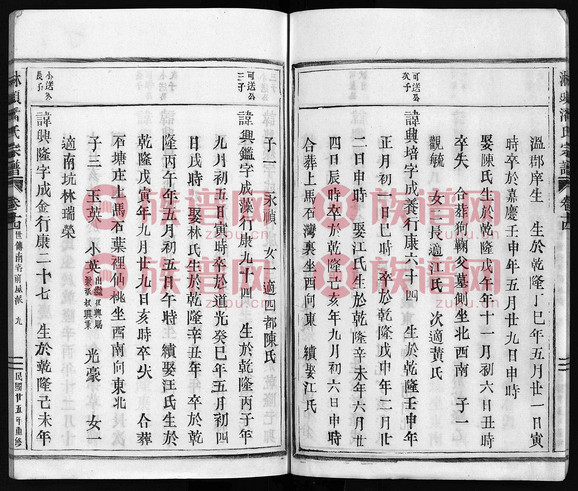 溫郡庠生 生於乾隆丁巳年五月廿一日寅
時卒於嘉慶壬申年五月廿九日申時
娶陳氏生於乾隆戊午年十一月初六日寅時
卒失 合葬祠鞠父墓側坐北西南 子一
觀毓 女二 長適江氏 次適黃氏
可送公
次子
諱興培字成養行康六十四 生於乾隆壬申年
正月初一日巳時卒於乾隆戊申年二月廿
二日申時 娶江氏生於乾隆辛未年六月廿
四日辰時卒於乾隆癸亥年九月初六日申時
合葬上馬石灣裏坐西向東 續娶江氏
林頭潘氏宗譜
卷十四
子一 永禎 女一 適四都陳氏
可送公
三子
諱興鑑字成藻行康九十四 生於乾隆丙子年
九月初五日寅時卒於道光癸巳年五月初四
日戌時 娶林氏生於乾隆辛丑年 卒於乾
隆丙午年五月初五日午時 續娶汪氏生於
乾隆戊寅年九月廿九日亥時卒失 合葬
石塘庄上馬石葉裡仙桃坐西南向東北
子三 玉英 小英 出繼興周 光豪 女一
適南坑林瑞榮
小送公
長子
諱興隆字成金行康二十七 生於乾隆己未年
林頭潘氏宗譜
卷十四
九
民國廿五年重修
族谱网
zupu.cn